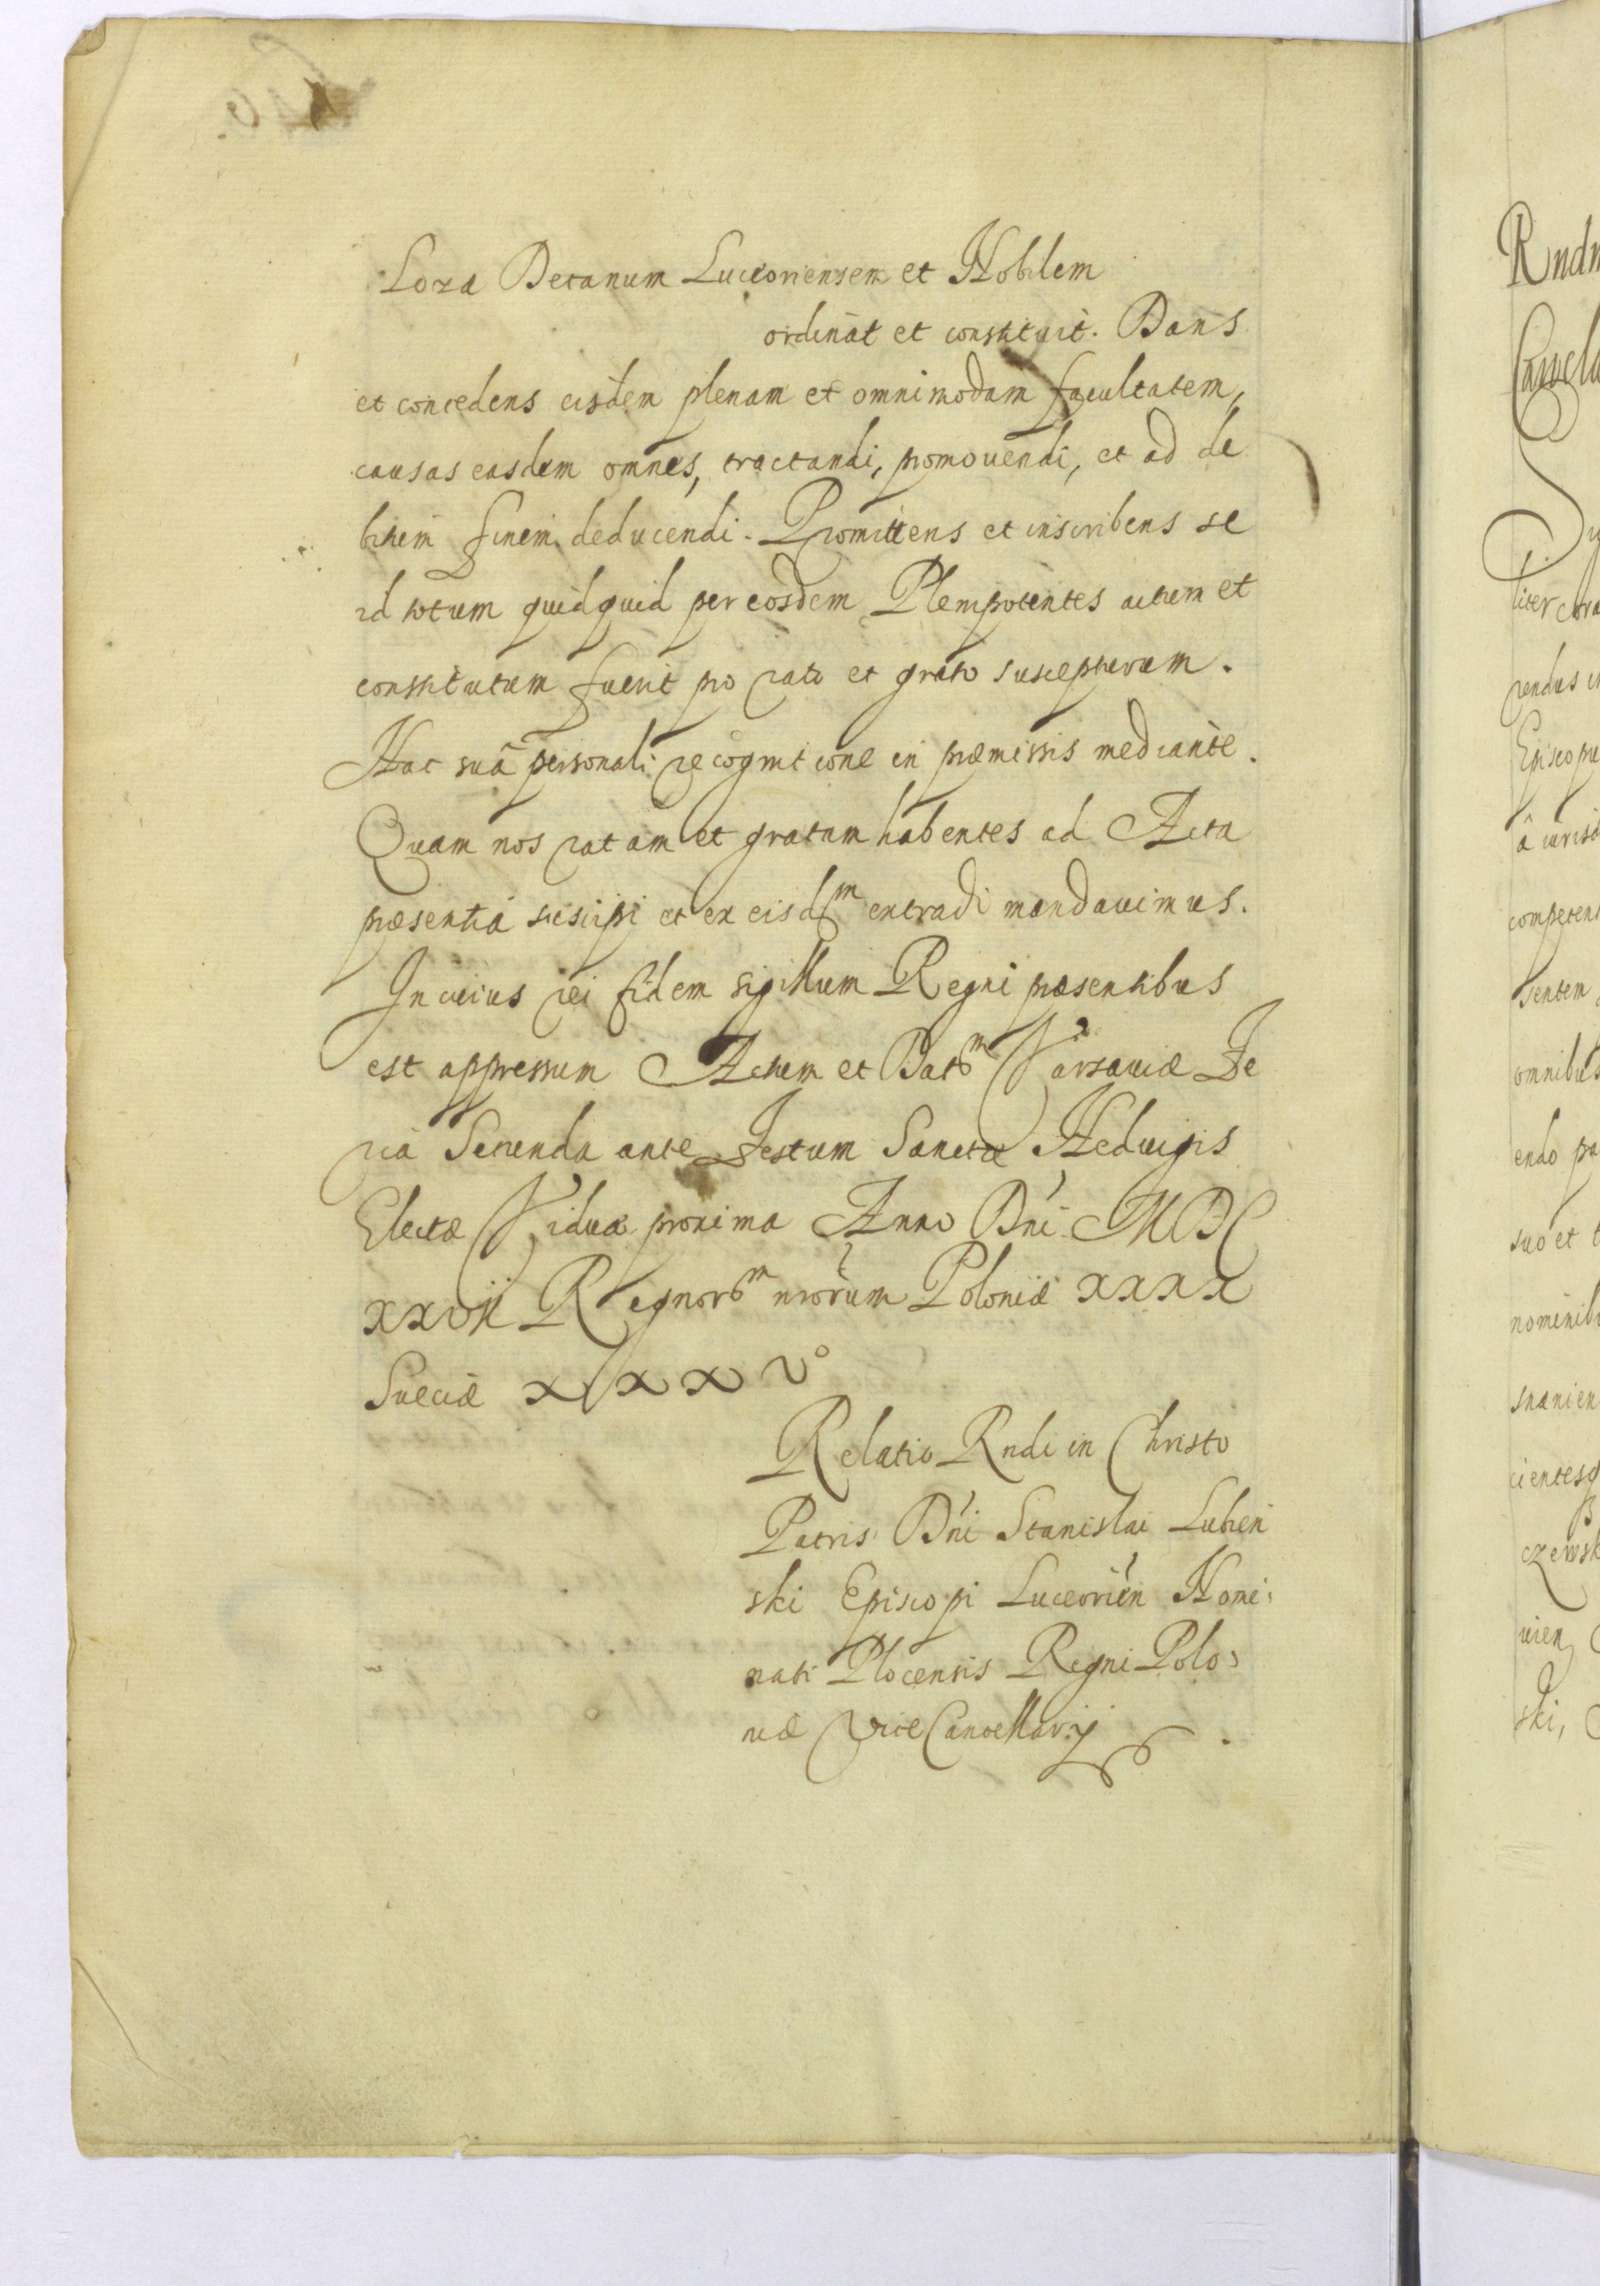 Loza Decanum Luceoriensem et Nobilem
ordinat et constituit. Dans
et concedens eisdem plenam et omnimodam facultatem,
causas easdem omnes, tractandi, promouendi, et ad de
bitum finem deducendi. Promittens et inscribens se
id totum quidquid per eosdem Plenipotentes actum et
constitutum fuerit pro rato et grato suscepturum.
Hac suâ personali recognitione in præmissis mediante.
Quam nos ratam et gratam habentes ad Acta
præsentia suscipi et ex eisdm extradi mandauimus.
In cuius rei fidem sigillum Regni præsentibus
est appressum Actum et Datm Varsauiæ Fe
ria Secunda ante Festum Sanctæ Heduigis
Electæ Viduæ proxima Anno Dni MDC
XXVII Regnorm nrorum Poloniæ XXXX
Sueciæ XXXVo
Relatio Rndi in Christo
Patris Dni Stanislai Lubien
ski Episcopi Luceorien Nomi:
nati Plocensis Regni Polo:
niæ ViceCancellarij
Rndm
liter cora
rendus in
Episcopu
competent
sentem
omnibus
endo pa
suo et t
nominib
snanien
cientesq
czewsk
uien
ski,